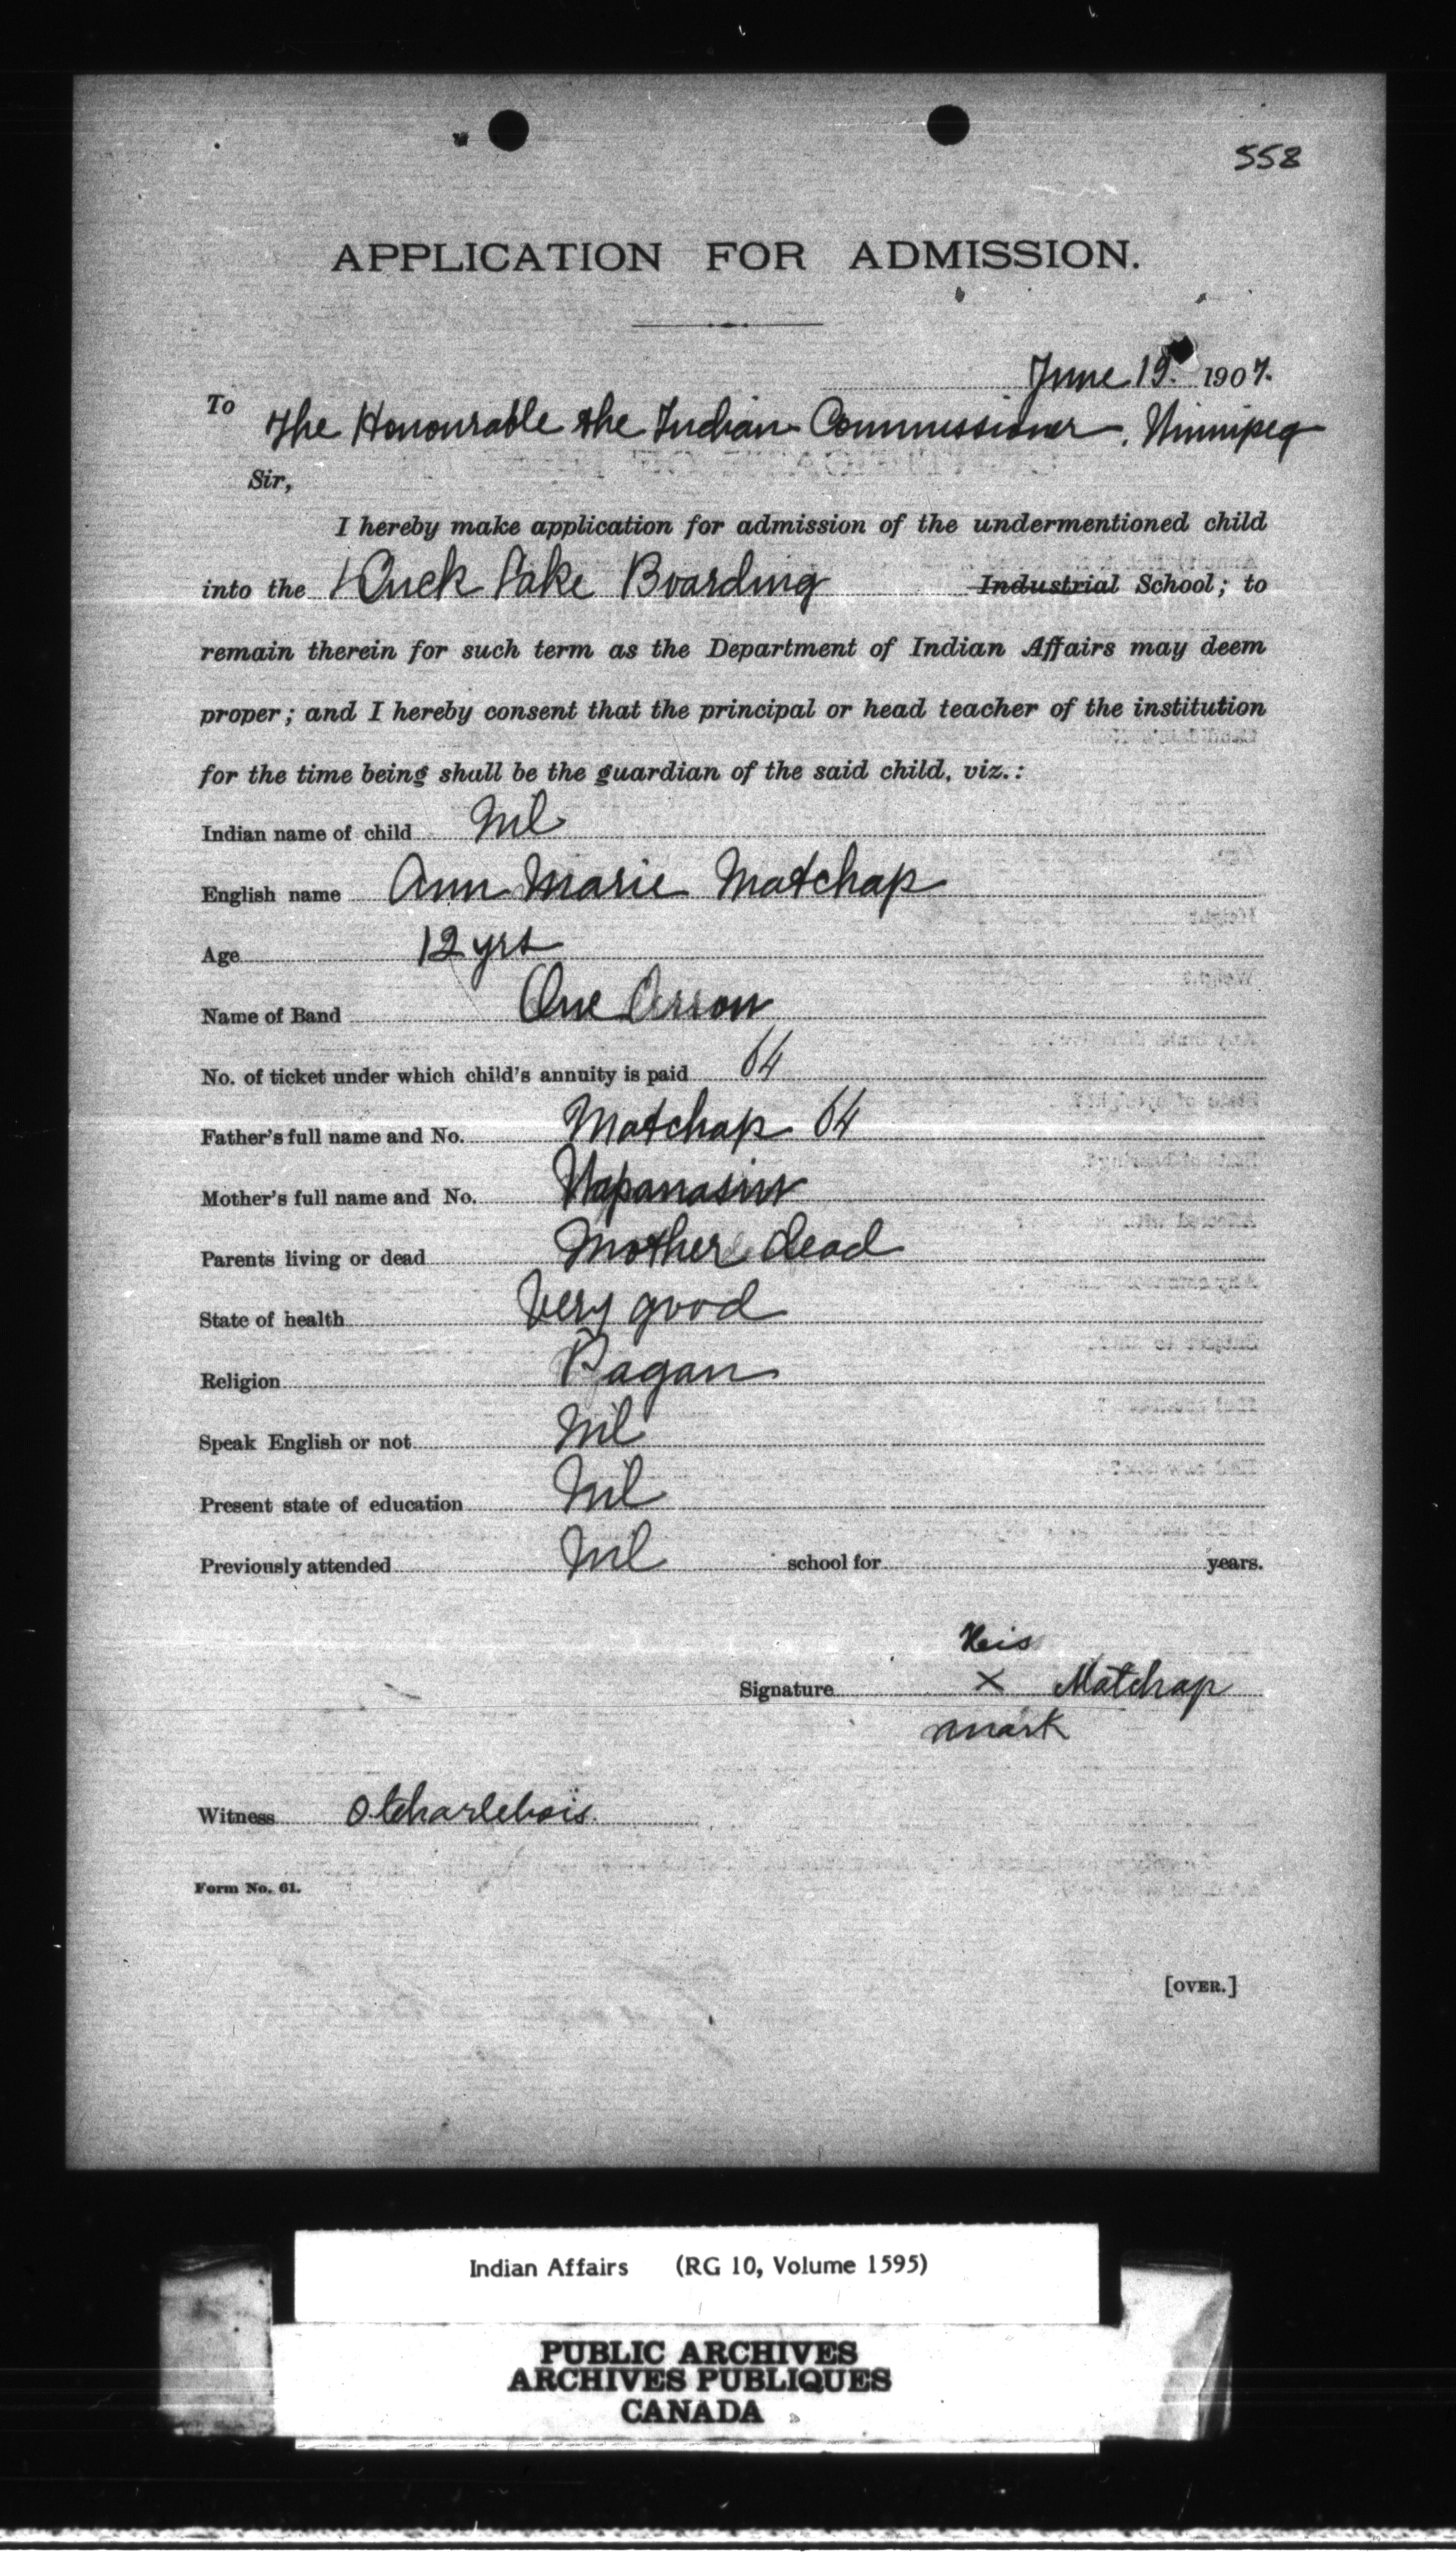 558
APPLICATION FOR ADMISSION.
June 19. 1907.
To The Honourable the Indian Commissioner, Winnipeg
Sir,
I hereby make application for admission of the undermentioned child
into the Duck Lake Boarding Industrial School; to
remain therein for such term as the Department of Indian Affairs may deem
proper; and I hereby consent that the principal or head teacher of the institution
for the time being shall be the guardian of the said child, viz.:
Indian name of child Nil
English name Ann Marie Matchap
Age 12 yrs
Name of Band One Arrow
No. of ticket under which child's annuity is paid 64
Father's full name and No. Matchap 64
Mother's full name and No. Wapanasiw
Parents living or dead Mother dead
State of health Very good
Religion Pagan
Speak English or not Nil
Present state of education Nil
Previously attended Nil school for years.
His
Signature X Matchap
mark
Witness O. Charlebois.
Form No. 61.
[OVER.]
Indian Affairs (RG 10, Volume 1595)
PUBLIC ARCHIVES
ARCHIVES PUBLIQUES
CANADA